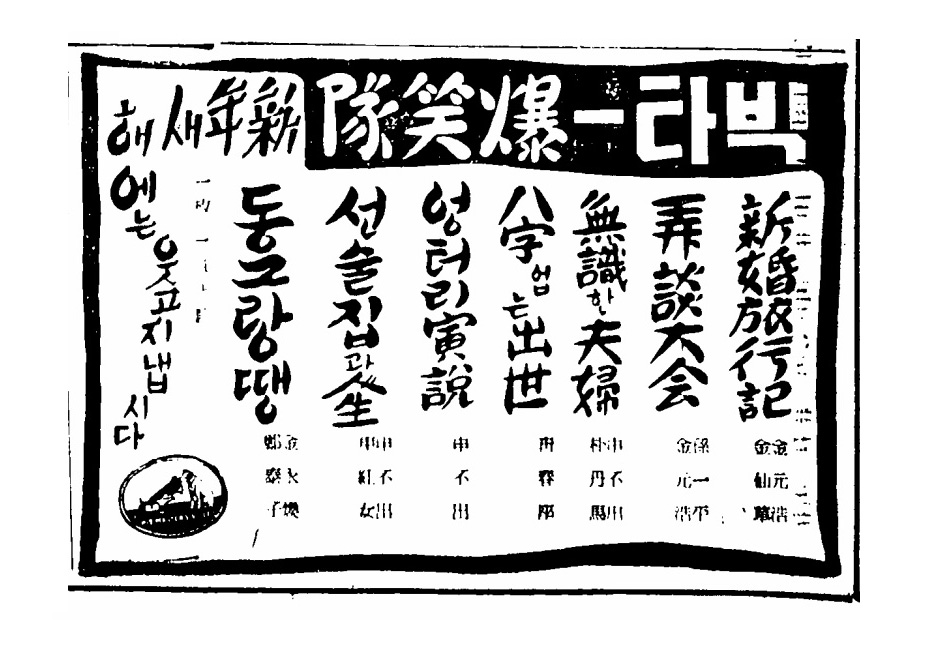 빅타ー爆笑隊
新年새해
에는웃고지냅시다
新婚旅行記
金元浩
金仙草
弄談大会
孫一平
金元浩
無識한夫婦
申不出
朴丹馬
八字업는出世
엉터리寅說
申不出
선술집과人生
申不出
申紅女
동그랑땡